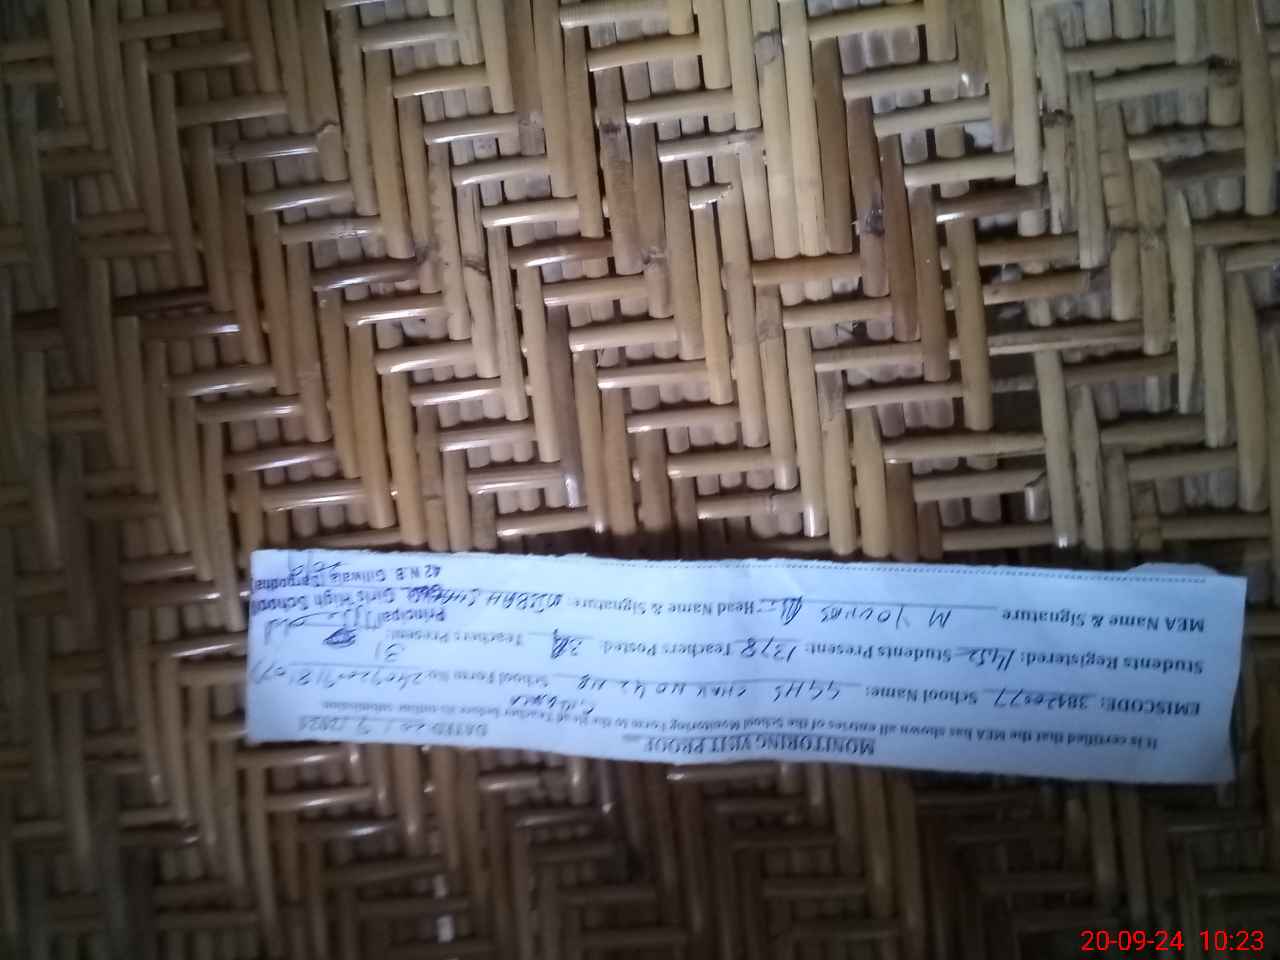 MONITORING VISIT PROOF
It is certified that the MEA has shown all entries of the School Monitoring Form to the Head Teacher before its online submission. DATED 20 / 9 /2024
EMISCODE: 38420077 School Name: GGHS CHAK NO 42 NB School Form No
Students Registered: 1452 Students Present: 1378 Teachers Posted: Teachers Present: 31
MEA Name & Signature M YOUNAS Head Name & Signature: MISBAH
Principal
Girls High School
42 N.B. Gillwala (Sargodha)
20-09-24 10:23